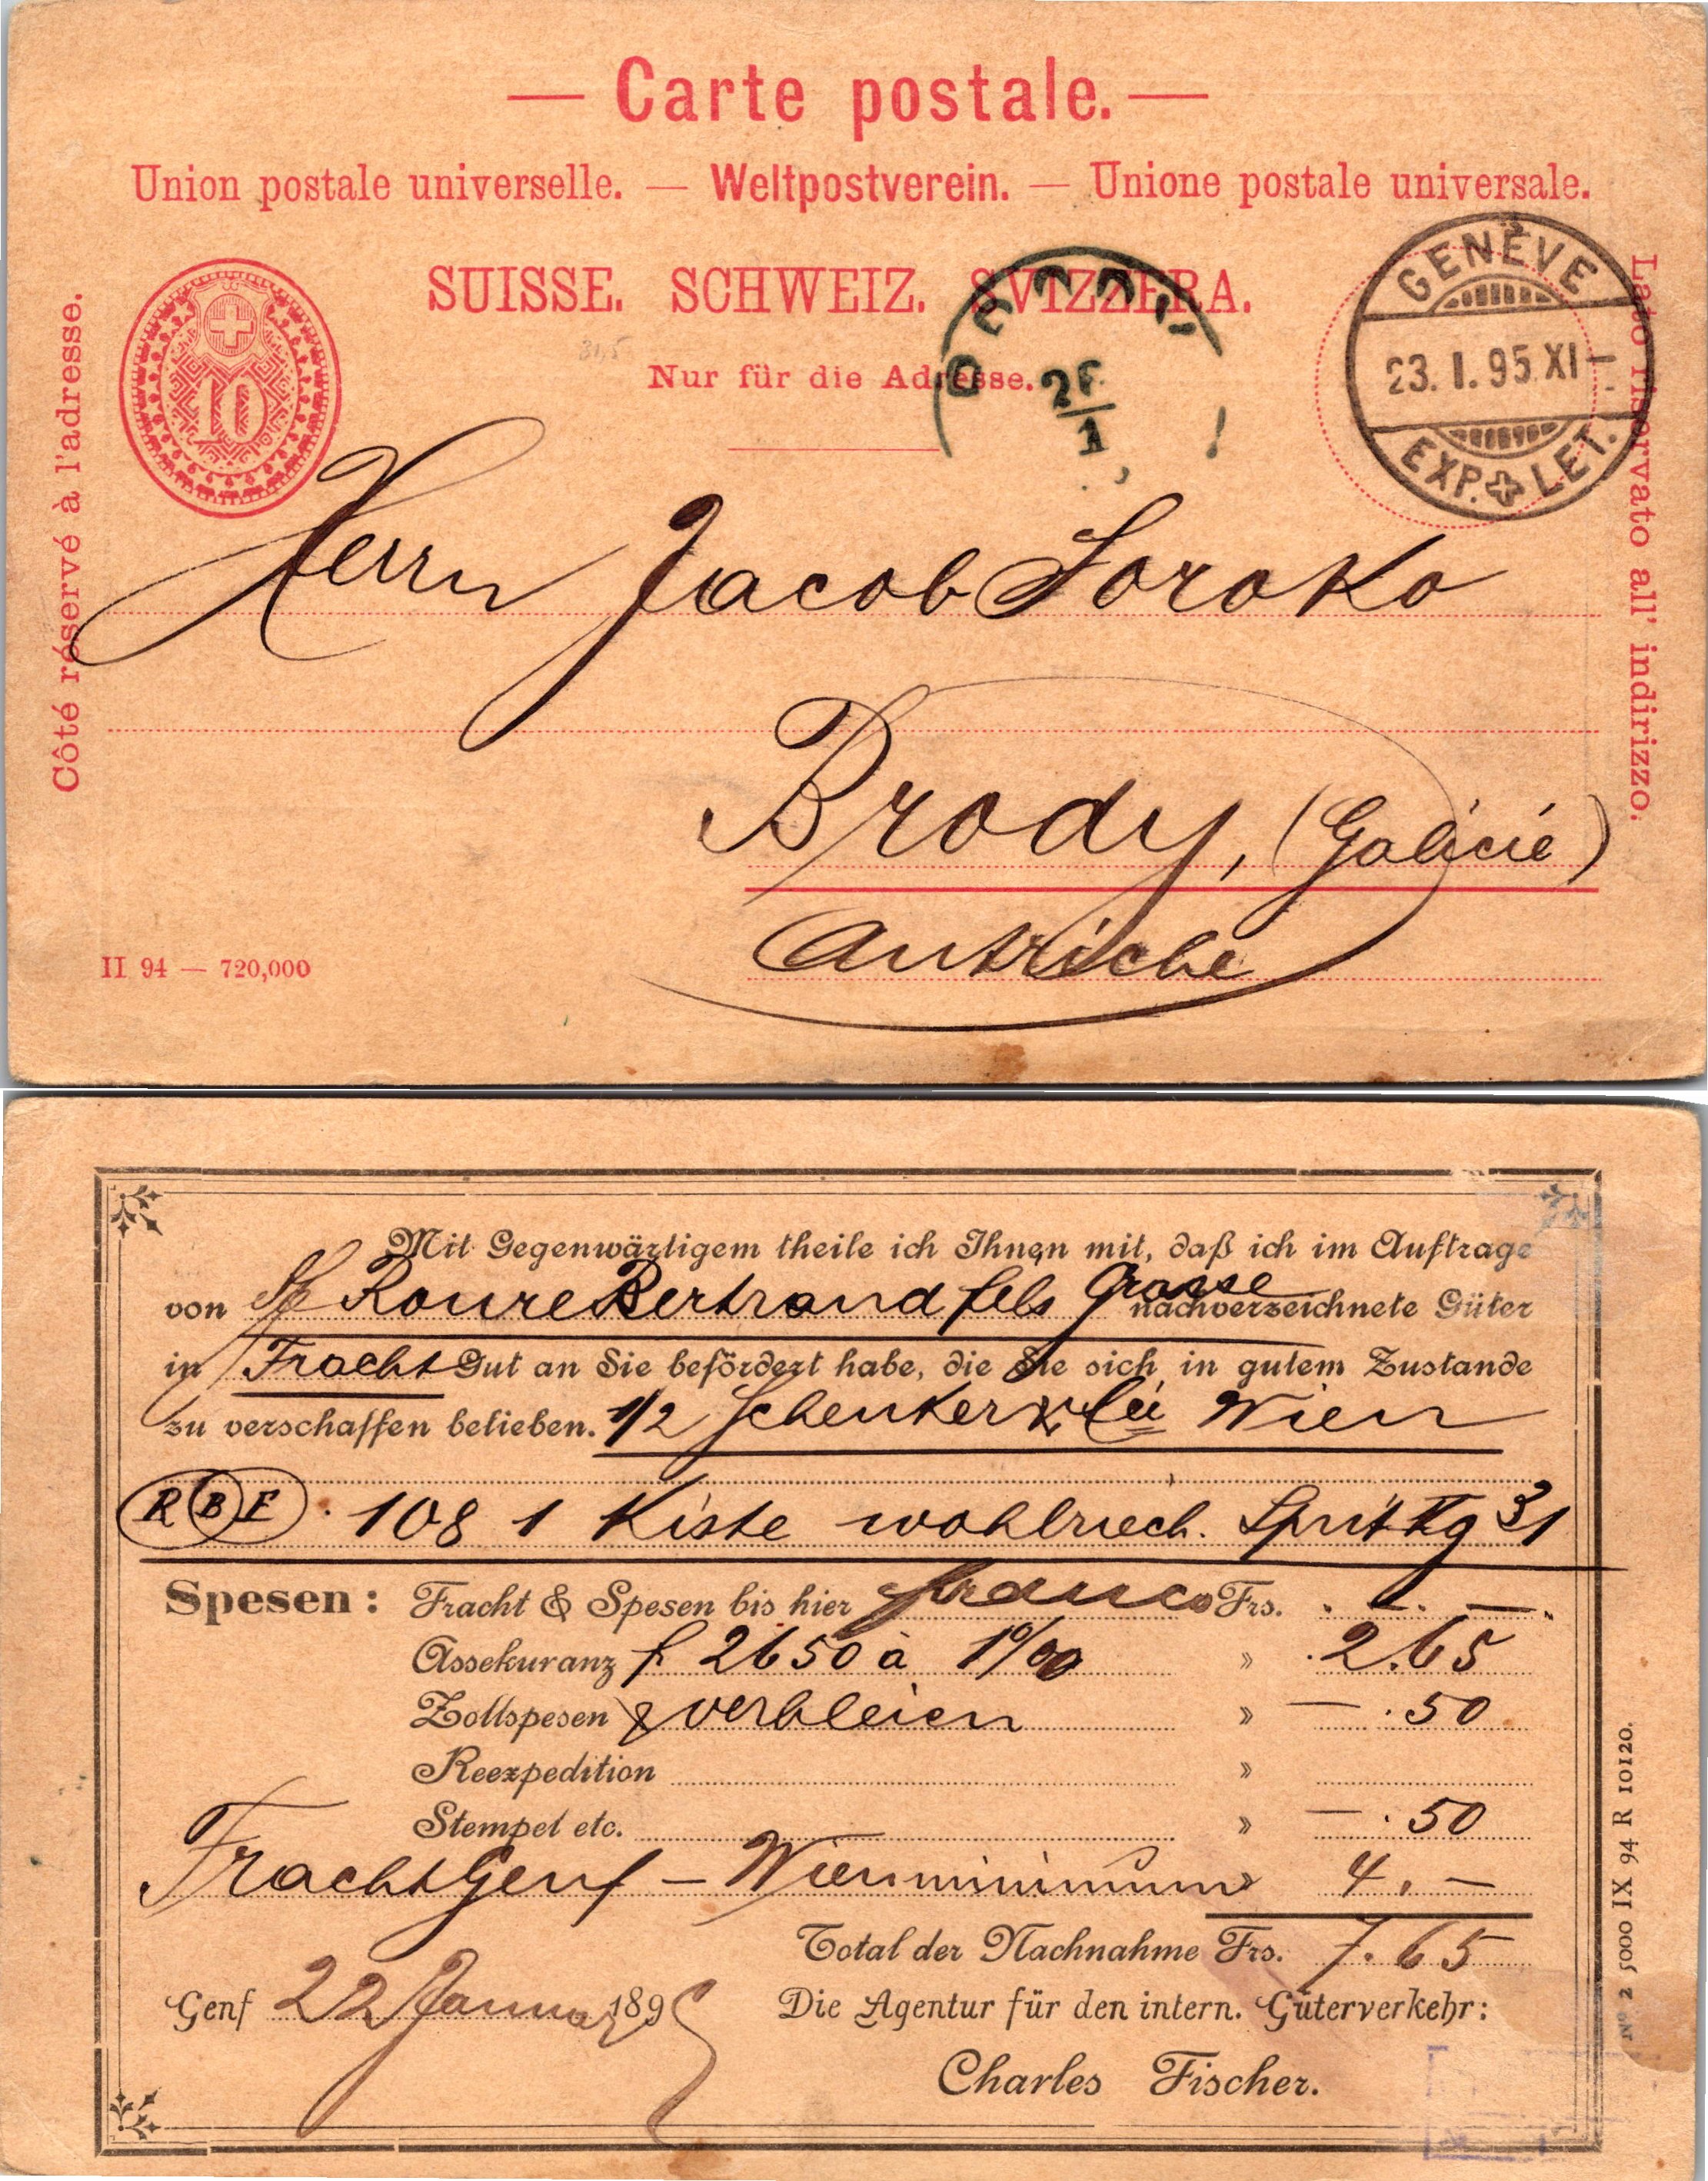 — Carte postale. —
Union postale universelle. — Weltpostverein. — Unione postale universale.
SUISSE. SCHWEIZ. SVIZZERA.
Nur für die Adresse.
Côté réservé à l'adresse.
Lato riservato all' indirizzo.
10
31,5
GENÈVE
23. I. 95 XI —
EXP. LET.
Herrn Jacob Soroko
Brody, (Galicie)
Autriche
II 94 — 720,000
Mit Gegenwärtigem theile ich Ihnen mit, daß ich im Auftrage
von Roure Bertrand fils Grasse nachverzeichnete Güter
in Fracht Gut an Sie befördert habe, die Sie sich in gutem Zustande
zu verschaffen belieben. Schenker & Cie Wien
RBF . 108 1 Kiste wohlriech. Sprit Kg 31
Spesen: Fracht & Spesen bis hier franco Frs. . —. —.
Assekuranz f 2650 à 1‰ » 2.65
Zollspesen & verbleien » — .50
Reexpedition »
Stempel etc. » — .50
Fracht Genf – Wien minimum » 4. —
Total der Nachnahme Frs. 7.65
Genf 22 Januar 1895
Die Agentur für den intern. Güterverkehr:
Charles Fischer.
Nº 2 5000 IX 94 R 10120.